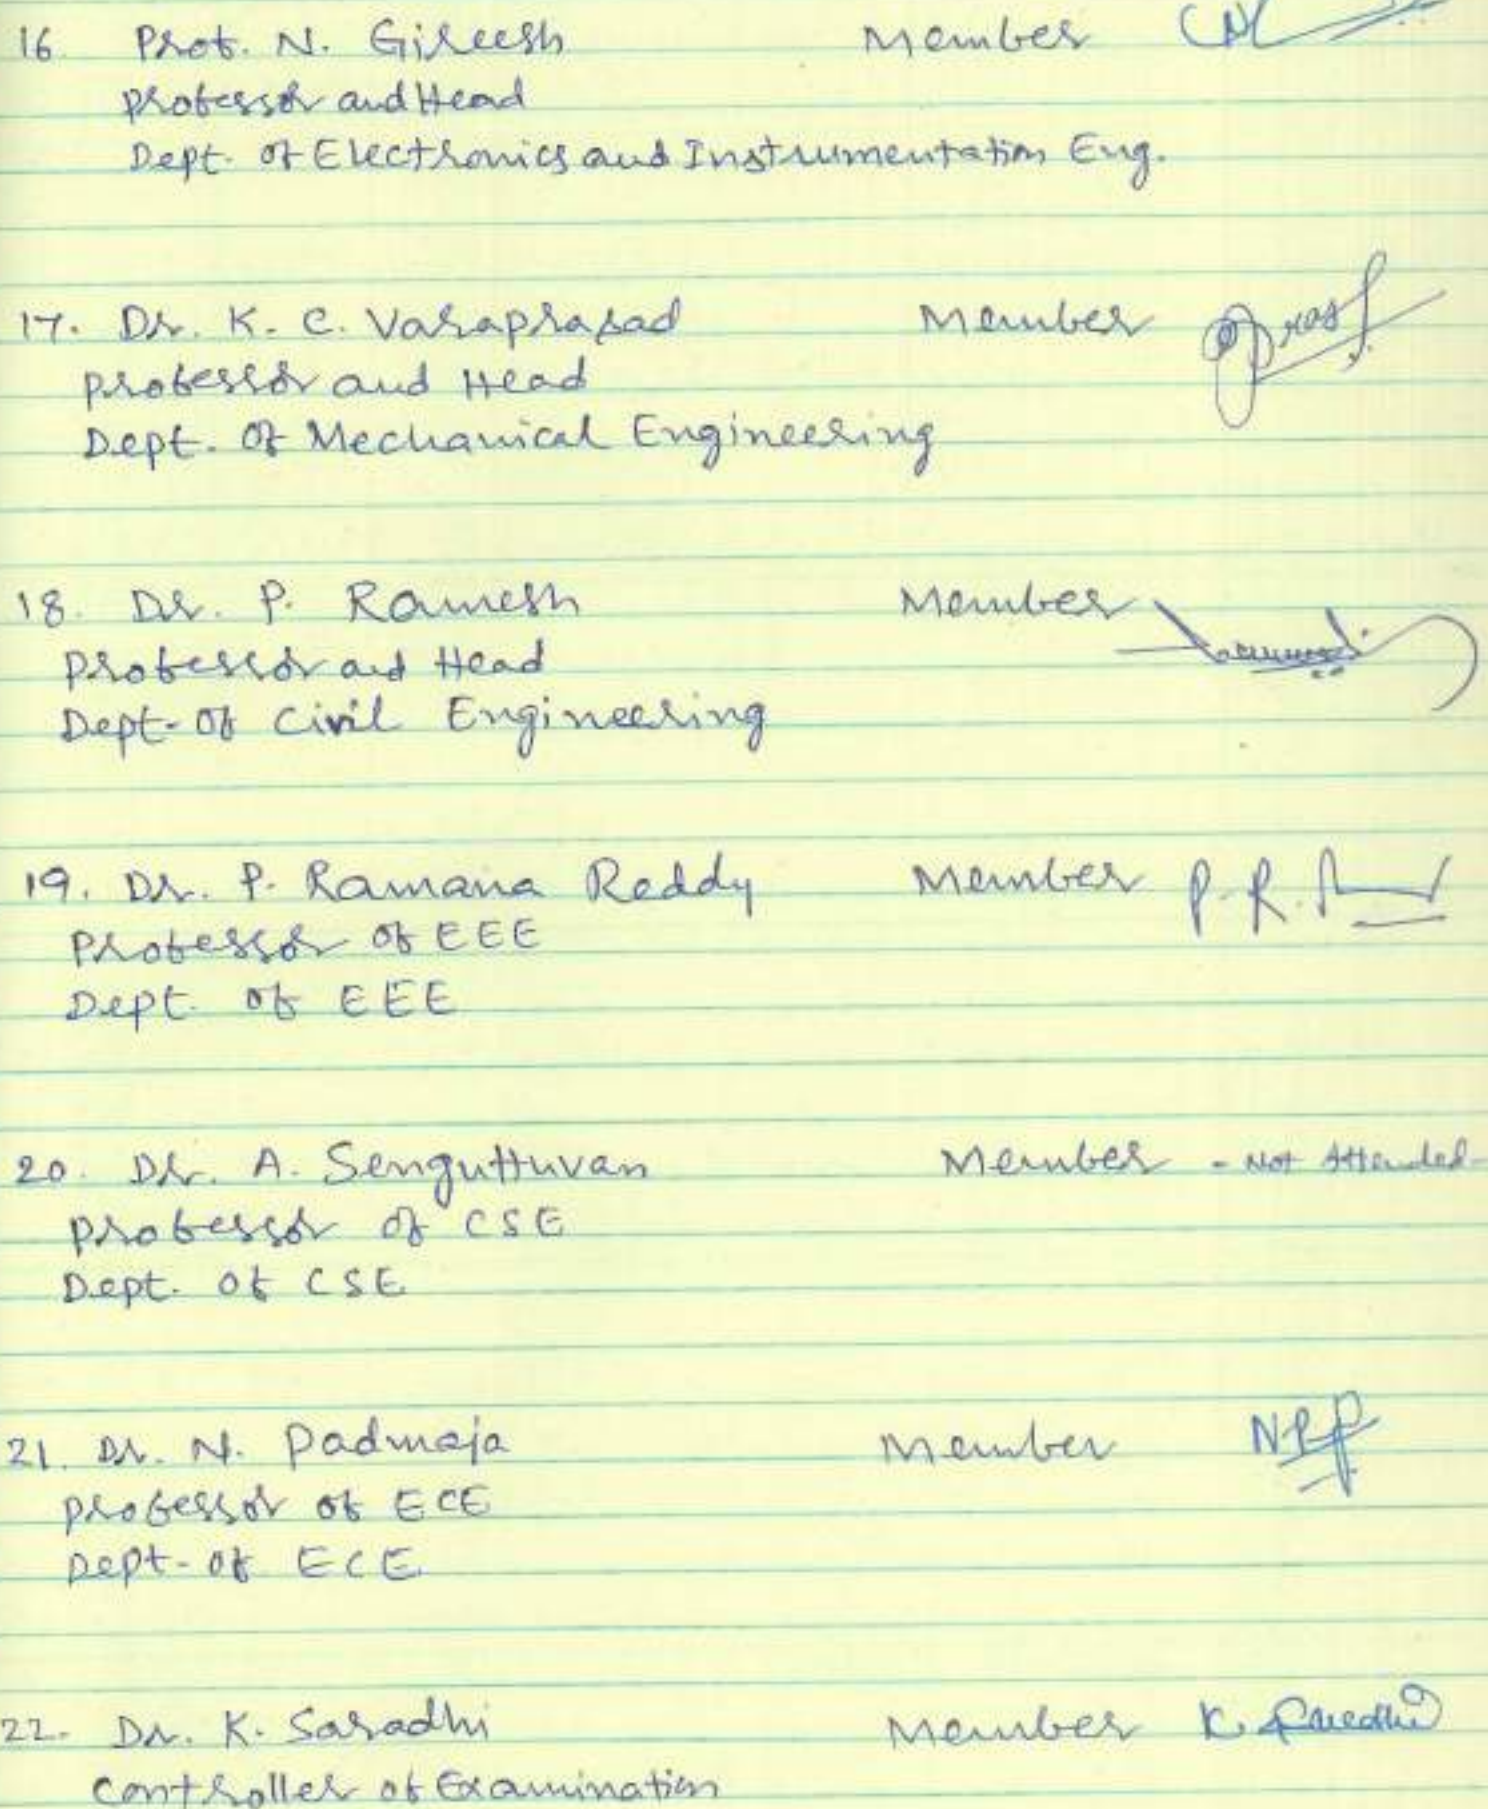 16. Prof. N. Gireesh Member
Professor and Head
Dept. of Electronics and Instrumentation Eng.
17. Dr. K. C. Varaprasad Member
Professor and Head
Dept. of Mechanical Engineering
18. Dr. P. Ramesh Member
Professor and Head
Dept. of Civil Engineering
19. Dr. P. Ramana Reddy Member P. R.
Professor of EEE
Dept. of EEE
20. Dr. A. Senguttuvan Member - Not Attended -
Professor of CSE
Dept. of CSE
21. Dr. N. Padmaja Member
Professor of ECE
Dept. of ECE
22. Dr. K. Saradhi Member K. Saradhi
Controller of Examination